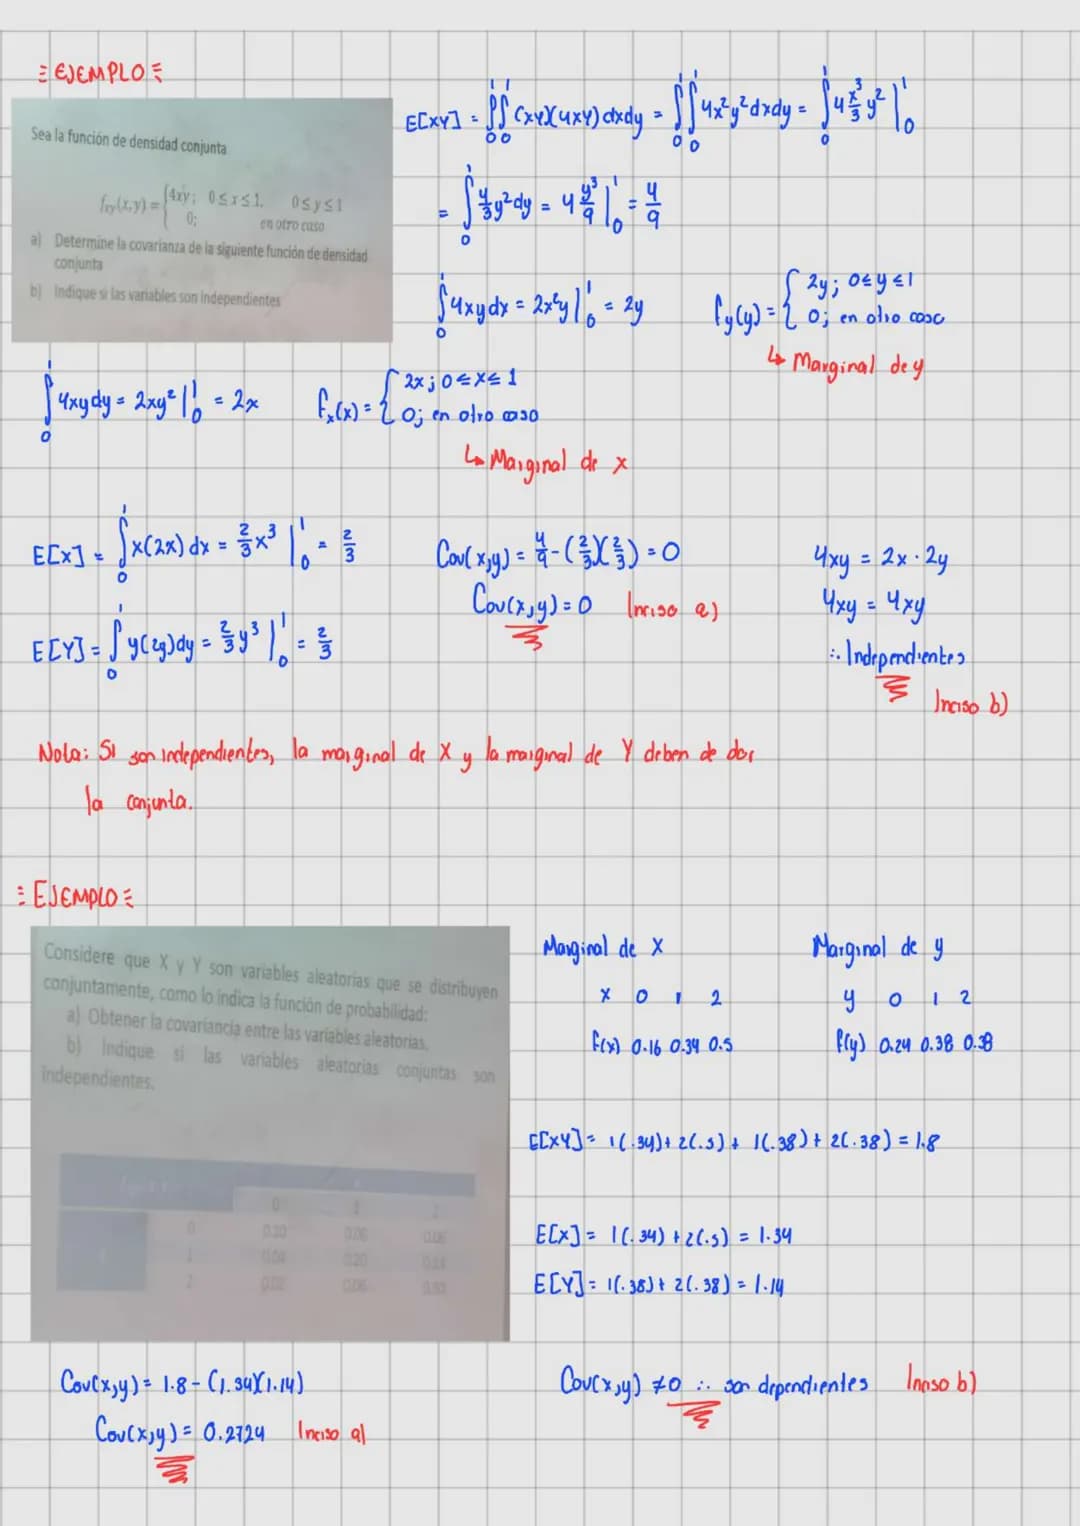 EJEMPLO
Sea la función de densidad conjunta
fxy(x,y) = { 4xy; 0≤x≤1, 0≤y≤1
0; en otro caso
a) Determine la covarianza de la siguiente función de densidad
conjunta
b) Indique si las variables son independientes
E[XY] = ∫₀¹∫₀¹ (xy)(4xy) dxdy = ∫₀¹∫₀¹ 4x²y²dxdy = ∫₀¹ 4 x³/3 y² |₀¹
= ∫₀¹ 4/3 y² dy = 4 y³/9 |₀¹ = 4/9
∫₀¹ 4xy dx = 2x²y |₀¹ = 2y
fy(y) = { 2y; 0≤y≤1
0; en otro caso
↳ Marginal de y
∫₀¹ 4xy dy = 2xy² |₀¹ = 2x
fx(x) = { 2x; 0≤x≤1
0; en otro caso
↳ Marginal de x
E[X] = ∫₀¹ x(2x) dx = 2/3 x³ |₀¹ = 2/3
E[Y] = ∫₀¹ y(2y)dy = 2/3 y³ |₀¹ = 2/3
Cov(x,y) = 4/9 - (2/3)(2/3) = 0
Cov(x,y) = 0 Inciso a)
4xy = 2x · 2y
4xy = 4xy
∴ Independientes
Inciso b)
Nota: Si son independientes, la marginal de X y la marginal de Y deben de dar
la conjunta.
EJEMPLO
Considere que X y Y son variables aleatorias que se distribuyen
conjuntamente, como lo indica la función de probabilidad:
a) Obtener la covariancia entre las variables aleatorias.
b) Indique si las variables aleatorias conjuntas son
independientes.
0 1 2
0 0.10 0.06
1 0.04 0.20
2 0.02 0.06
Marginal de X
x 0 1 2
f(x) 0.16 0.34 0.5
Marginal de y
y 0 1 2
f(y) 0.24 0.38 0.38
E[XY] = 1(.34)+ 2(.5) + 1(.38) + 2(.38) = 1.8
E[X] = 1(.34) + 2(.5) = 1.34
E[Y] = 1(.38) + 2(.38) = 1.14
Cov(x,y) = 1.8 - (1.34)(1.14)
Cov(x,y) = 0.2724 Inciso a)
Cov(x,y) ≠0 ∴ son dependientes Inciso b)